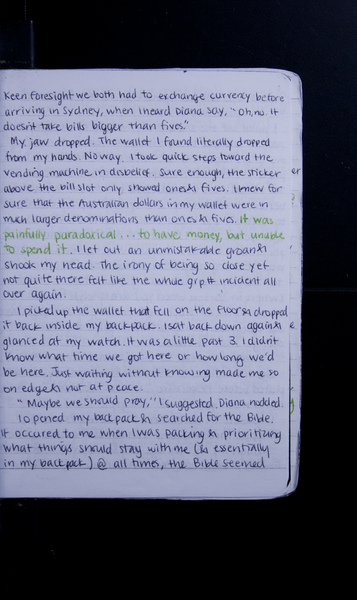 Keen foresight we both had to exchange currency before
arriving in Sydney, when I heard Diana say, "Oh, no. It
doesn't take bills bigger than fives."
My jaw dropped. The wallet I found literally dropped
from my hands. No way. I took quick steps toward the
vending machine in disbelief. Sure enough, the sticker
above the bill slot only showed ones & fives. I knew for
sure that the Australian dollars in my wallet were in
much larger denominations than ones & fives. It was
painfully paradoxical... to have money, but unable
to spend it. I let out an unmistakable groan &
shook my head. The irony of being so close yet
not quite there felt like the whole grip incident all
over again.
I picked up the wallet that fell on the floor & dropped
it back inside my backpack. I sat back down again &
glanced at my watch. It was a little past 3. I didn't
know what time we got here or how long we'd
be here. Just waiting without knowing made me so
on edge & not at peace.
"Maybe we should pray," I suggested. Diana nodded.
I opened my backpack & searched for the Bible.
It occured to me when I was packing & prioritizing
what things should stay with me (essentially
in my backpack) @ all times, the Bible seemed